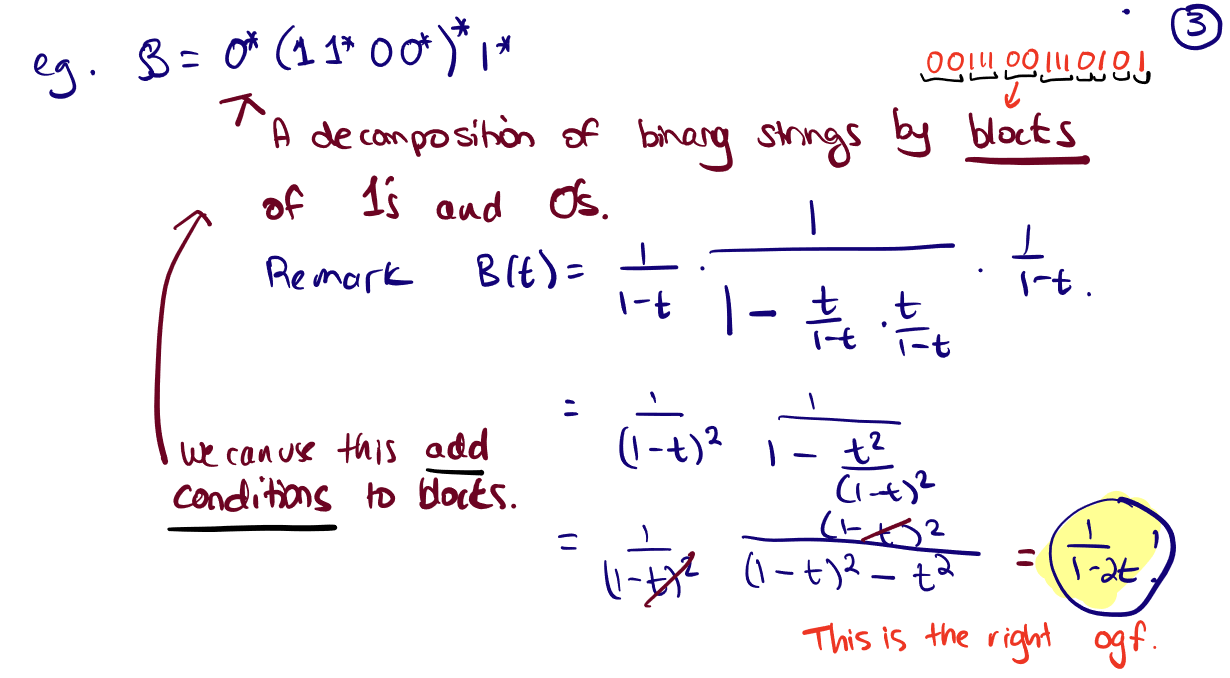 ③
eg. B = 0* (1 1* 0 0*)* 1*
00111 00111 0101
A decomposition of binary strings by blocks
of 1's and 0s.
Remark B(t) = 1/(1-t) · 1/(1 - t/(1-t) · t/(1-t)) · 1/(1-t).
= 1/(1-t)² 1/(1 - t²/(1-t)²)
we can use this add
conditions to blocks.
= 1/(1-t)² (1-t)²/((1-t)² - t²) = 1/(1-2t)!
This is the right ogf.